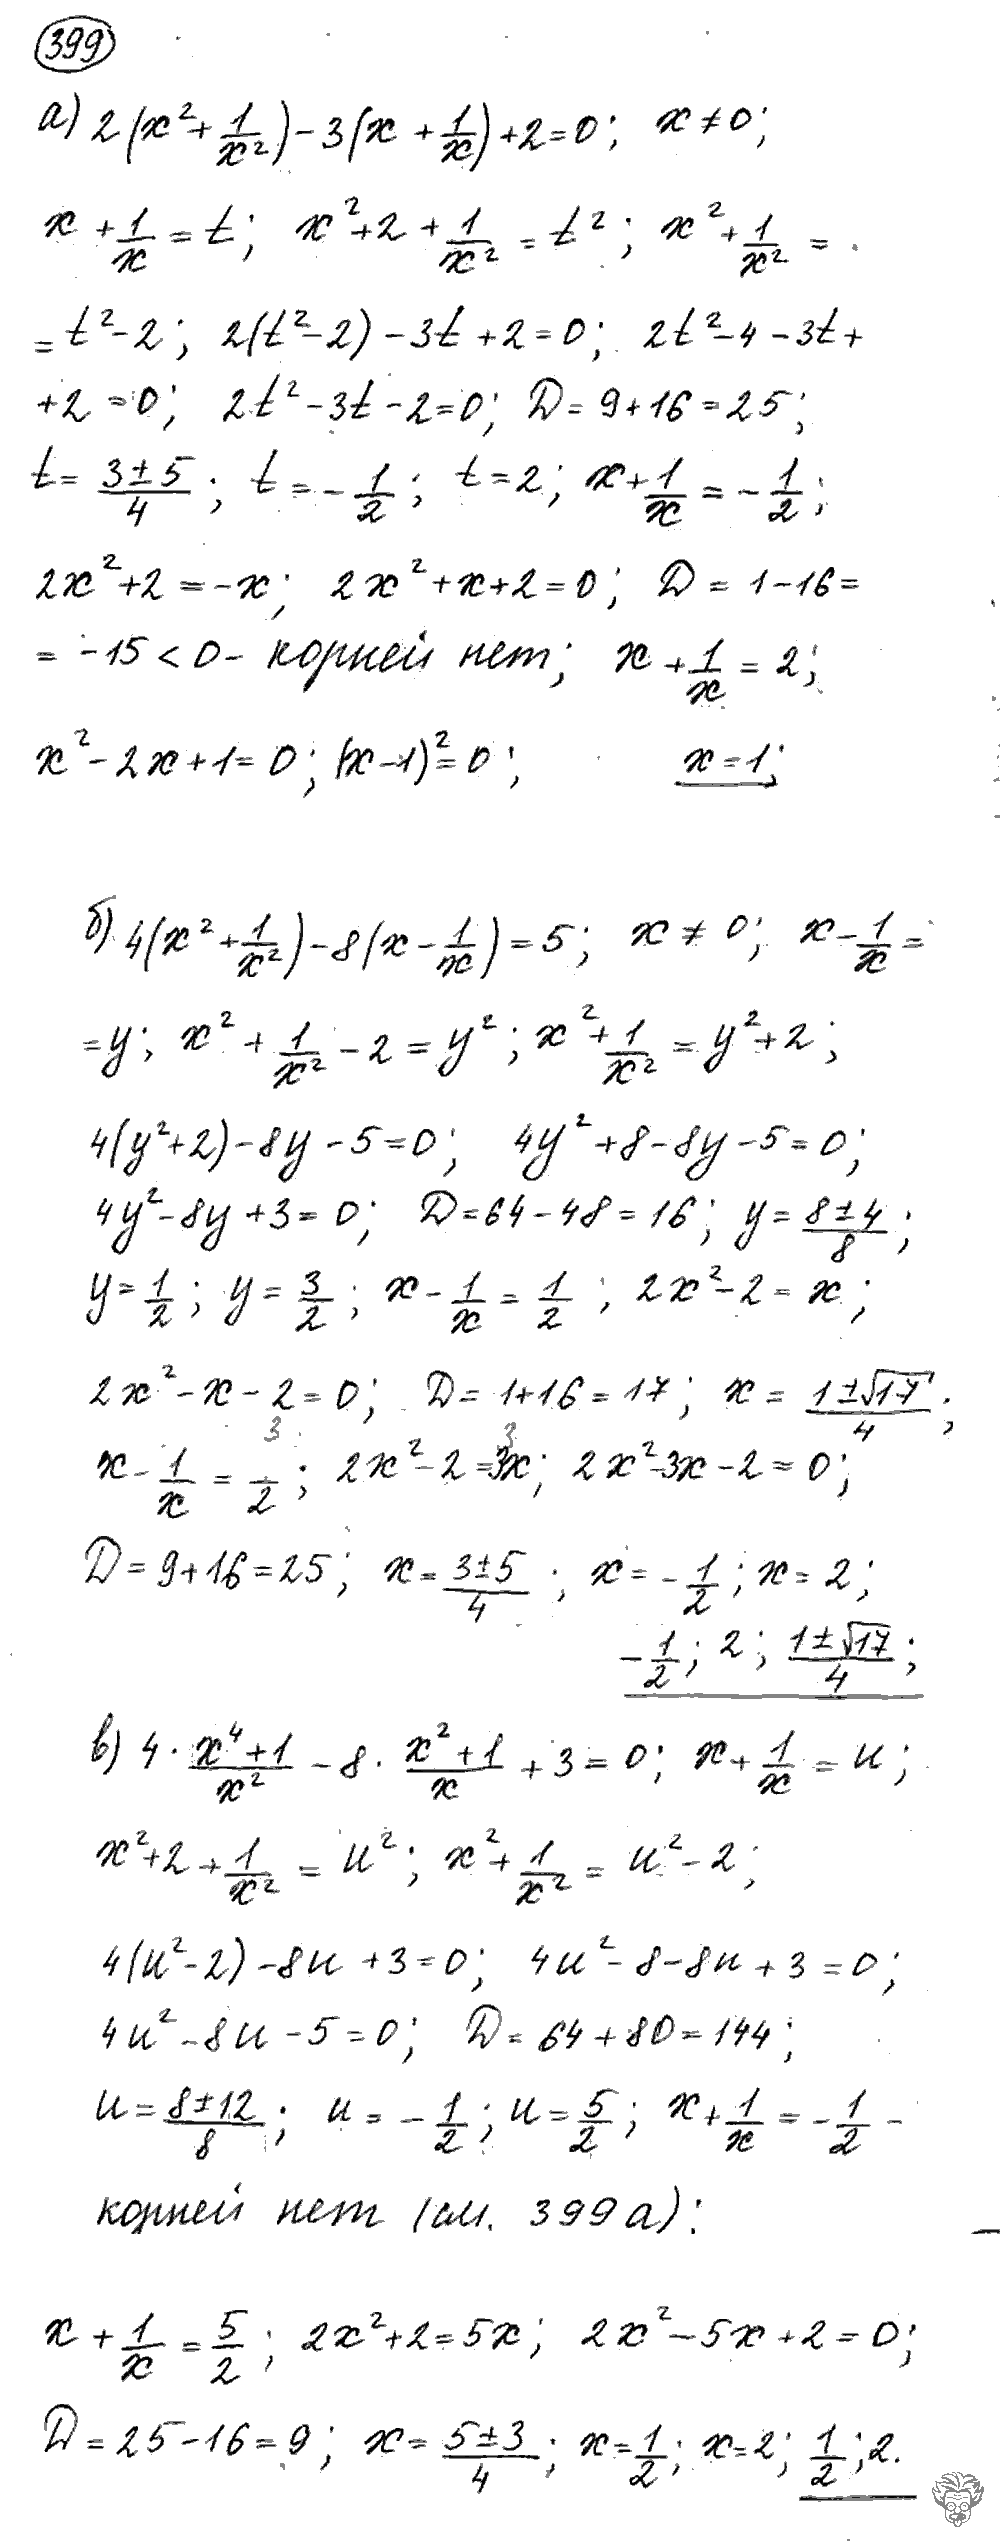 399
а) 2(x² + 1/x²) - 3(x + 1/x) + 2 = 0; x ≠ 0;
x + 1/x = t; x² + 2 + 1/x² = t²; x² + 1/x² =
= t² - 2; 2(t² - 2) - 3t + 2 = 0; 2t² - 4 - 3t +
+ 2 = 0; 2t² - 3t - 2 = 0; D = 9 + 16 = 25;
t = (3 ± 5)/4; t = -1/2; t = 2; x + 1/x = -1/2;
2x² + 2 = -x; 2x² + x + 2 = 0; D = 1 - 16 =
= -15 < 0 - корней нет; x + 1/x = 2;
x² - 2x + 1 = 0; (x - 1)² = 0; x = 1;
б) 4(x² + 1/x²) - 8(x - 1/x) = 5; x ≠ 0; x - 1/x =
= y; x² + 1/x² - 2 = y²; x² + 1/x² = y² + 2;
4(y² + 2) - 8y - 5 = 0; 4y² + 8 - 8y - 5 = 0;
4y² - 8y + 3 = 0; D = 64 - 48 = 16; y = (8 ± 4)/8;
y = 1/2; y = 3/2; x - 1/x = 1/2; 2x² - 2 = x;
2x² - x - 2 = 0; D = 1 + 16 = 17; x = (1 ± √17)/4;
x - 1/x = 3/2; 2x² - 2 = 3x; 2x² - 3x - 2 = 0;
D = 9 + 16 = 25; x = (3 ± 5)/4; x = -1/2; x = 2;
-1/2; 2; (1 ± √17)/4;
в) 4 · (x⁴ + 1)/x² - 8 · (x² + 1)/x + 3 = 0; x + 1/x = u;
x² + 2 + 1/x² = u²; x² + 1/x² = u² - 2;
4(u² - 2) - 8u + 3 = 0; 4u² - 8 - 8u + 3 = 0;
4u² - 8u - 5 = 0; D = 64 + 80 = 144;
u = (8 ± 12)/8; u = -1/2; u = 5/2; x + 1/x = -1/2 -
корней нет (см. 399 а):
x + 1/x = 5/2; 2x² + 2 = 5x; 2x² - 5x + 2 = 0;
D = 25 - 16 = 9; x = (5 ± 3)/4; x = 1/2; x = 2; 1/2; 2.